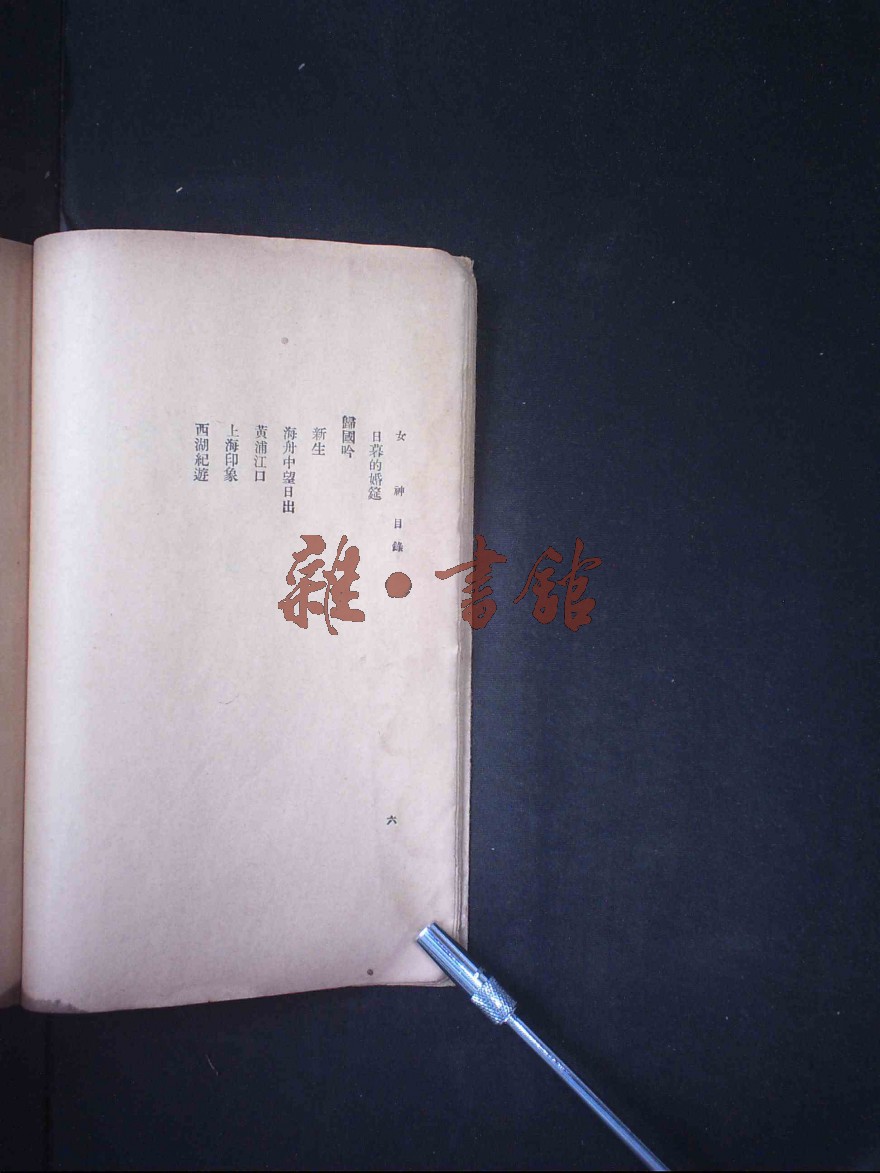 女神目錄
日暮的婚筵
歸國吟
新生
海舟中望日出
黃浦江口
上海印象
西湖紀遊
六
雜·書館